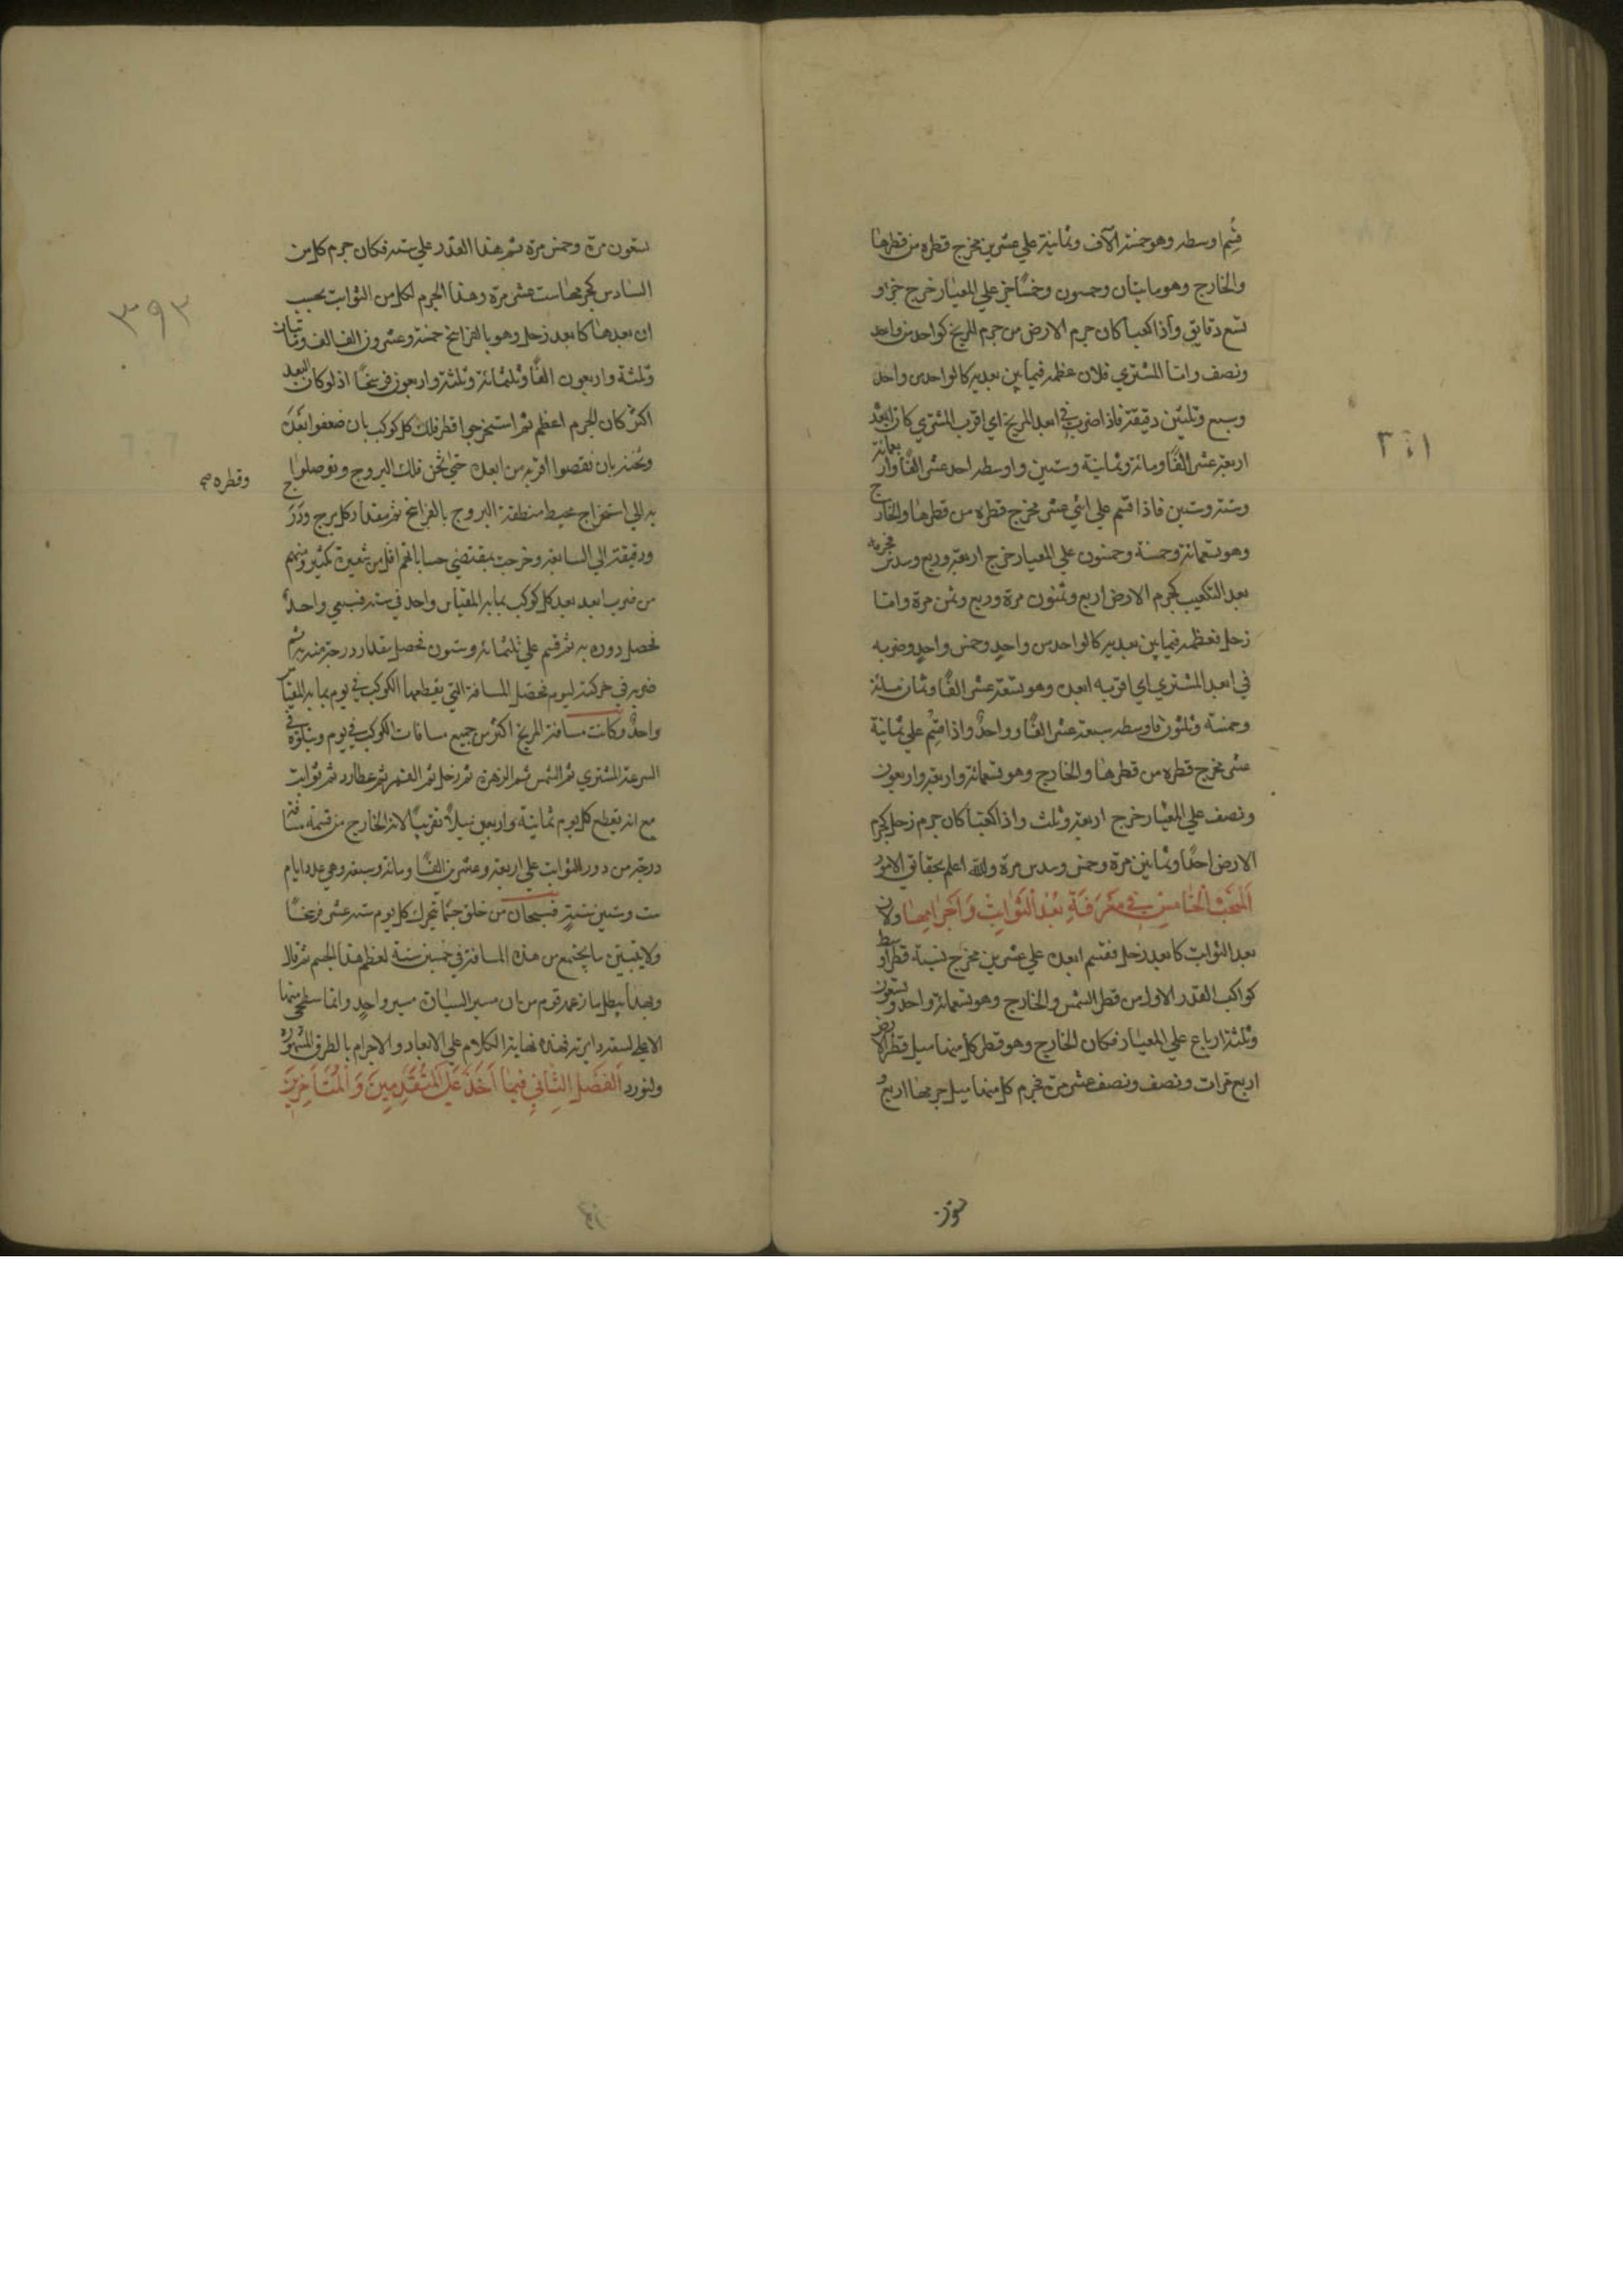 قسم اوسطه وهو خمسة الآف وثمانية علي عشرين مخرج قطره من قطرها
والخارج وهو مايتان وخمسون وخمسا جز علي المعيار خرج جزاو
تسع دقايق واذا كعبا كان جرم الارض من جرم المريخ كواحد من واحد
ونصف واما المشتري فلان عظمه فيما بين بعديه كالواحد من واحد
وسبع وثلثين دقيقة فاذا ضرب في ابعد المريخ اي اقرب المشتري كان ابعد
اربعة عشر الفًا ومائة وثمانية وستين واوسطه احد عشر الفًا واربعمائة
وستة وستين فاذا قسم علي اثني عشر مخرج قطره من قطرها والخارج
وهو تسعمائة وخمسة وخمسون علي المعيار خرج اربعة وربع وسدس فجرمه
بعد التكعيب كجرم الارض اربع وثمنون مرة وربع وثمن مرة واما
زحل فعظمه فيما بين بعديه كالواحد من واحد وخمس واحد وضربه
في ابعد المشتري اي اقربه ابعده وهو تسعة عشر الفًا وثمان مائة
وخمسة وثلثون فاوسطه سبعة عشر الفًا وواحدٌ واذا قسم علي ثمانية
عشر مخرج قطره من قطرها والخارج وهو تسعمائة واربعة واربعون
ونصف علي المعيار خرج اربعة وثلث واذا كعبا كان جرم زحل كجرم
الارض احدًا وثمانين مرة وخمس وسدس مرة والله اعلم بحقائق الامور
المبحث الخامس في معرفة بعد الثوابت واجرامها ولان
بعد الثوابت كابعد زحل فقسم ابعده علي عشرين مخرج نسبة قطر اوسط
كواكب القدر الاول من قطر الشمس والخارج وهو تسعمائة واحد وتسعون
وثلثة ارباع علي المعيار فكان الخارج وهو قطر كل منها مثل قطر الارض
اربع مرات ونصف ونصف عشر مرة فجرم كل منها مثل جرمها اربع
تسعون
١ ٤ ٣
تسعون مرة وخمس مرة ثم هذا القدر علي ستة فكان جرم كل من
السادس كجرمها ست عشر مرة وهذا الجرم لكل من الثوابت بحسب
ان بعدها كابعد زحل وهو بالفراسخ خمسة وعشرون الف الف وثمان
وثلثة واربعون الفًا وثلثمائة وثلثة واربعون فرسخًا اذ لو كان البعد
اكثر كان الجرم اعظم ثم استخرجوا قطر فلك كل كوكب بان ضعفوا ابعده
وثخنه بان نقصوا اقربه من ابعده حتي ثخن فلك البروج وتوصلوا
به الي استخراج محيط منطقة البروج بالفراسخ ثم مقدار كل برج ودرج
ودقيقة الي السابعة وخرجت بمقتضي حساباتهم اقل من شعيرة بكثير ومنهم
من ضرب ابعد بعد كل كوكب بما به المقياس واحد في ستة وسبعي واحد
فحصل دوره به ثم قسم علي ثلثمائة وستون فحصل مقدار درجة منه به ثم
ضربه في حركته ليوم فحصل المسافة التي يقطعها الكوكب في يوم بما به المقياس
واحد وكانت مسافة المريخ اكثر من جميع مسافات الكوكب في يوم ويتلوه في
السرعة المشتري ثم الشمس ثم الزهرة ثم زحل ثم القمر ثم عطارد ثم ثوابت
مع انه يقطع كل يوم ثمانية واربعين ميلاً تقريبًا لان الخارج من قسمة مسافة
درجة من دور الثوابت علي اربعة وعشرين الفًا ومائة وسبعة وهي عدد ايام
ست وستين سنة فسبحان من خلق جسمًا يتحرك كل يوم ستة عشر فرسخًا
ولا يتبين ما يجتمع من هذه المسافة في خمسين سنة لعظم هذا الجسم ثم قالا
وبهذا يبطل ما زعمه قوم من ان مسير السيارة مسير واحد وانما سطحي منها
الابطا لسعة دايرته فهذه نهاية الكلام علي الابعاد والاجرام بالطرق المشهورة
ولنورد الفصل الثاني فيما اخذ علي المتقدمين والمتأخرين
وقطره صح
٣٩٣